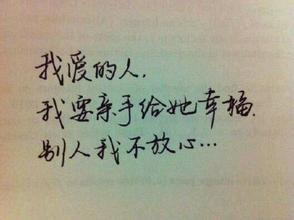 我爱的人，
我要亲手给她幸福．
别人我不放心…